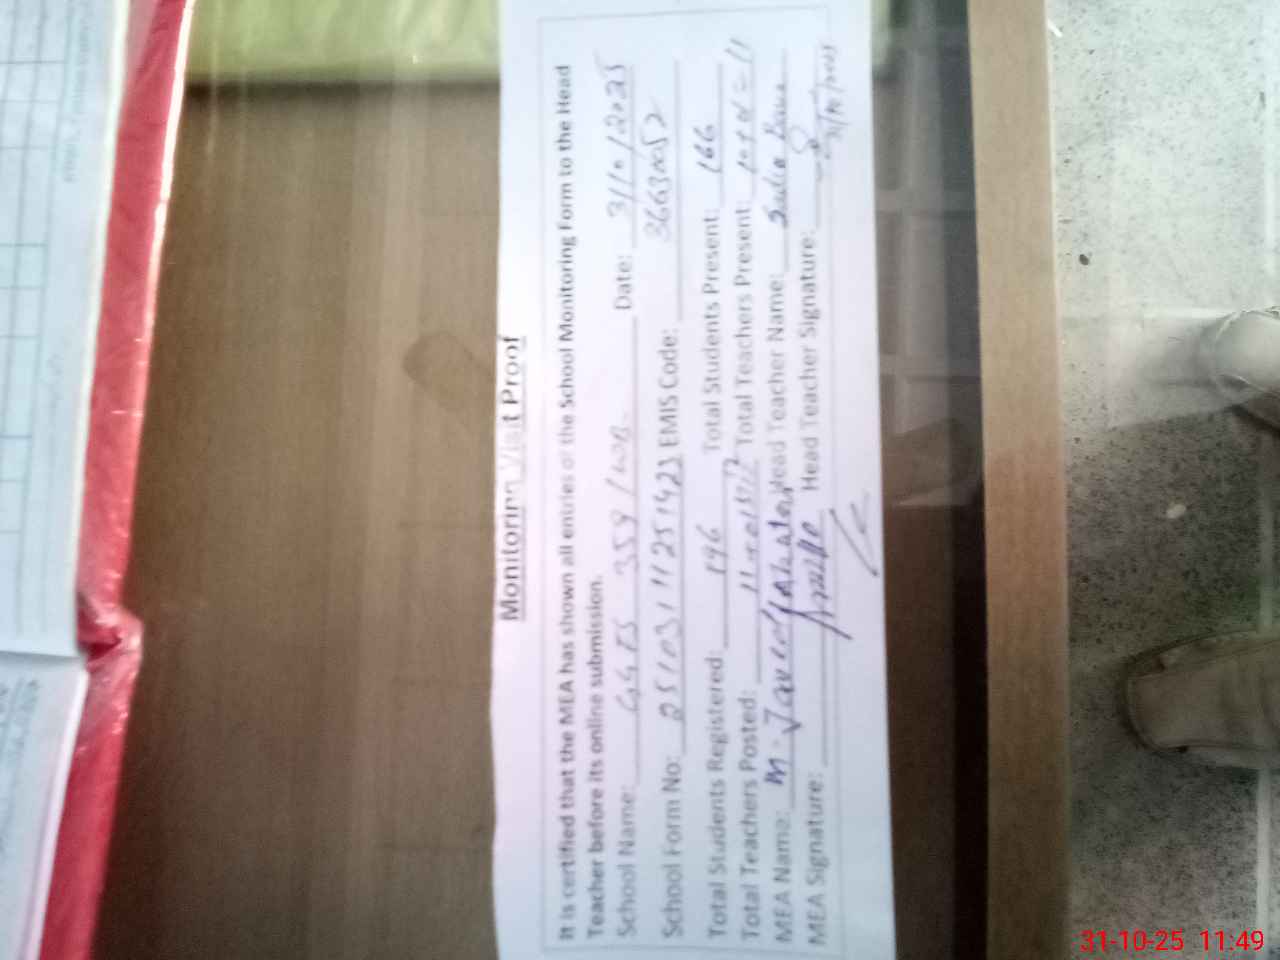 Monitoring Visit Proof
It is certified that the MEA has shown all entries of the School Monitoring Form to the Head
Teacher before its online submission.
School Name: GGES 359/WB. Date: 31/10/2025
School Form No: 25103111251423 EMIS Code: 36630052
Total Students Registered: 196 Total Students Present: 166
Total Teachers Posted: Total Teachers Present: 10+01=11
MEA Name: M. Javed Head Teacher Name: Sadia Bano
MEA Signature: Head Teacher Signature:
31/10/2025
31-10-25 11:49